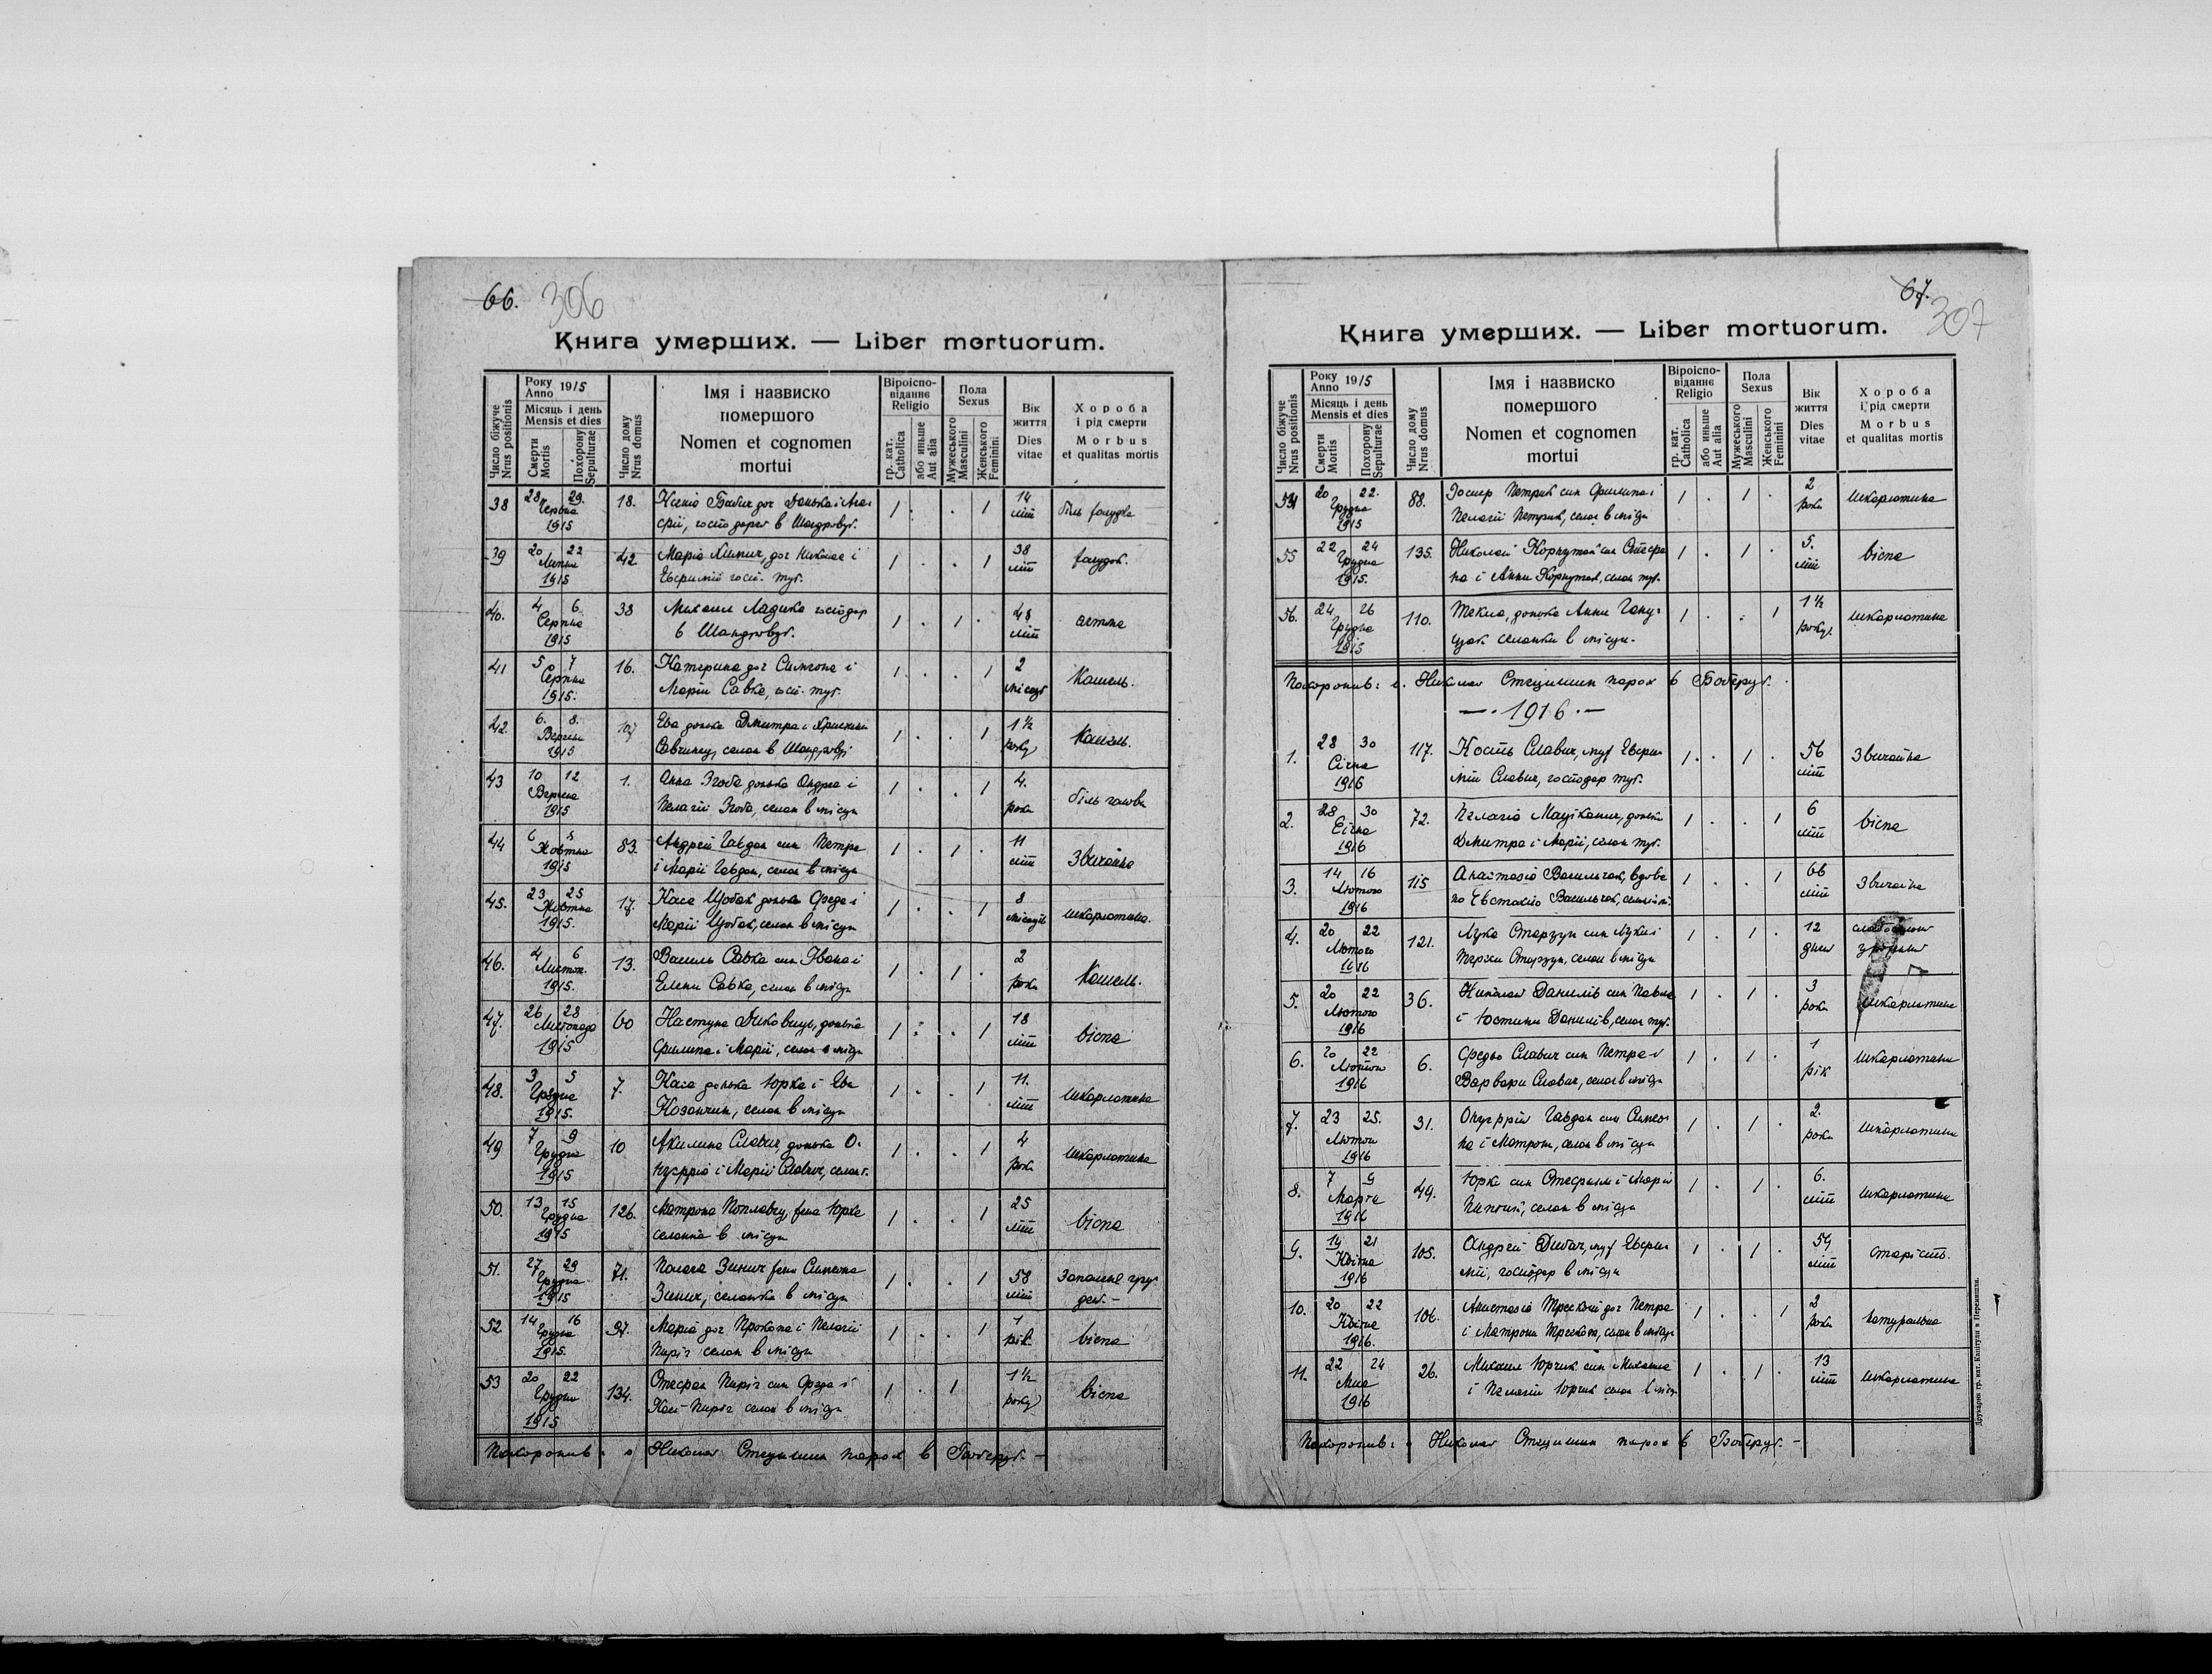 66. 306
Книга умерших. — Liber mortuorum.
Число біжуче Nrus positionis
Року Anno 1915
Місяць і день Mensis et dies
Смерти Mortis
Похорону Sepulturae
Число дому Nrus domus
Імя і назвиско
помершого
Nomen et cognomen
mortui
Віроіспо-
віданнє
Religio
гр. кат. Catholica
або иньше Aut alia
Пола
Sexus
Мужеського Masculini
Женського Feminini
Вік
життя
Dies
vitae
Хороба
і рід смерти
Morbus
et qualitas mortis
38 28 29. Червня 1915 18. Ксенія Бабич доч
1 . . 1 14 літ біль
39 20 22 Липня 1915 42 Марія доч Николая і
1 . . 1 38 літ
40. 4 6. Серпня 1915 38 Михаил Ладика господар
в 1 . 1 . літ астма
41 5 7 Серпня 1915. 16. Катерина доч Симеона і
Марії Савка, 1 . . 1 2 місяці Кашель.
42. 6. 8. Вересня 1915 Ева донька Дмитра і
селян в 1 . . 1 1 ½ року Кашель.
43 10 12 Вересня 1915 1. Анна Згоба донька Андрея і
Пелагії Згоба, селян в місци 1 . . 1 4. роки біль голови
44 6 8 Жовтня 1915 83. Андрей Гавдан син Петра
і Марії Гавдан, селян в місци 1 . 1 . 11 літ Звичайна
45. 23 25 Жовтня 1915. 17. Кася Щобак донька Федя і
Марії Щобак, селян в місци 1 . . 1 8 місяців шкарлятина.
46. 4 6 Листоп. 1915. 13. Василь Савка син Івана і
Елени Савка, селян в місци 1 . 1 . 2 роки Кашель.
47. 26 28 Листопада 1915 60 Настуня донька
Филипа і Марії, селян в місци 1 . . 1 18 літ віспа
48. 3 5 Грудня 1915. 7. Кася донька Юрка і Еви
селян в місци 1 . . 1 11. літ шкарлятина
49 7 9 Грудня 1915 10 Акилина Славич, донька О-
нуфрія і Марії Славич, селян т. 1 . . 1 4 роки шкарлятина
50. 13 15 Грудня 1915 126. Матрона жена Юрка
селянка в місци 1 . . 1 25 літ віспа
51. 27 29 Грудня 1915 71. Зинич жена Симеона
Зинич, селянка в місци 1 . . 1 58 літ Запаленє гру-
дей. -
52 14 16 Грудня 1915. 97. Марія доч Прокопа і Пелагії
Пиріг селян в місци 1 . . 1 1 рік віспа
53 20 22 Грудня 1915 134. Стефан Пиріг син Федя і
Касі Пиріг селян в місци 1 . 1 1 ½ року віспа
Похоронив: о Николай Стецишин парох в
67. 307
Книга умерших. — Liber mortuorum.
Число біжуче Nrus positionis
Року Anno 1915
Місяць і день Mensis et dies
Смерти Mortis
Похорону Sepulturae
Число дому Nrus domus
Імя і назвиско
помершого
Nomen et cognomen
mortui
Віроіспо-
віданнє
Religio
гр. кат. Catholica
або иньше Aut alia
Пола
Sexus
Мужеського Masculini
Женського Feminini
Вік
життя
Dies
vitae
Хороба
і рід смерти
Morbus
et qualitas mortis
54 20 22. Грудня 1915 88. Йосиф Петрик син Филипа і
Пелагії Петрик, селян в місци 1 . 1 . 2 роки шкарлятина
55 22 24 Грудня 1915. 135. Николай син Стефа
на і Анни селян тут. 1 . 1 . 5. літ віспа
56. 24 26 Грудня 1915 110. Текля, донька Анни
селянки в місци. 1 . . 1 1 ½ року. шкарлятина
Похоронив: о. Николай Стецишин парох в
—. 1916 .—
1. 28 30 Січня 1916 117. Кость Славич, муж Евфи
мії Славич, господар тут. 1 . 1 . 56 літ Звичайна
2. 28 30 Січня 1916 72. Пелагія донька
Дмитра і Марії, селян тут. 1 . . 1 6 літ віспа
3. 14 16 Лютого 1916 115 Анастазія Васильчак, вдова
по Евстахію Васильчак, 1 . . 1 66 літ Звичайна
4. 20 22 Лютого 1616 121. Лука син Луки і
селян в місци 1 . 1 . 12 днів
5. 20 22 Лютого 1916 36. Николай Данилів син Павла
і Юстини Данилів, селян тут. 1 . 1 . 3 роки шкарлятина
6. 20 22 Лютого 1916 6. Федьо Славич син Петра і
Варвари Славич, селян в місци 1 . 1 . 1 рік шкарлятина
7. 23 25. Лютого 1916 31. Онуфрій Гавдан син Симео
на і Матрони, селян в місци 1 . 1 . 2. роки шкарлятина
8. 7 9 Марта 1916 49. Юрко син Стефана і Марії
селян в місци 1 . 1 . 6. літ шкарлятина
9. 19 21 Квітня 1916 105. Андрей муж Евфи
мії, господар в місци 1 . 1 . 54 літ старість.
10. 20 22 Квітня 1916. 106. Анастазія доч Петра
і Матрони селян в місци 1 . . 1 2 роки натуральна
11. 22 24 Мая 1916 26. Михаил Юрчик син Михаила
і Пелагії Юрчик селян в місци 1 . 1 . 13 літ шкарлятина
Похоронив: о Николай Стецишин парох в
Друкарня гр. кат. Капітули в Перемишли.